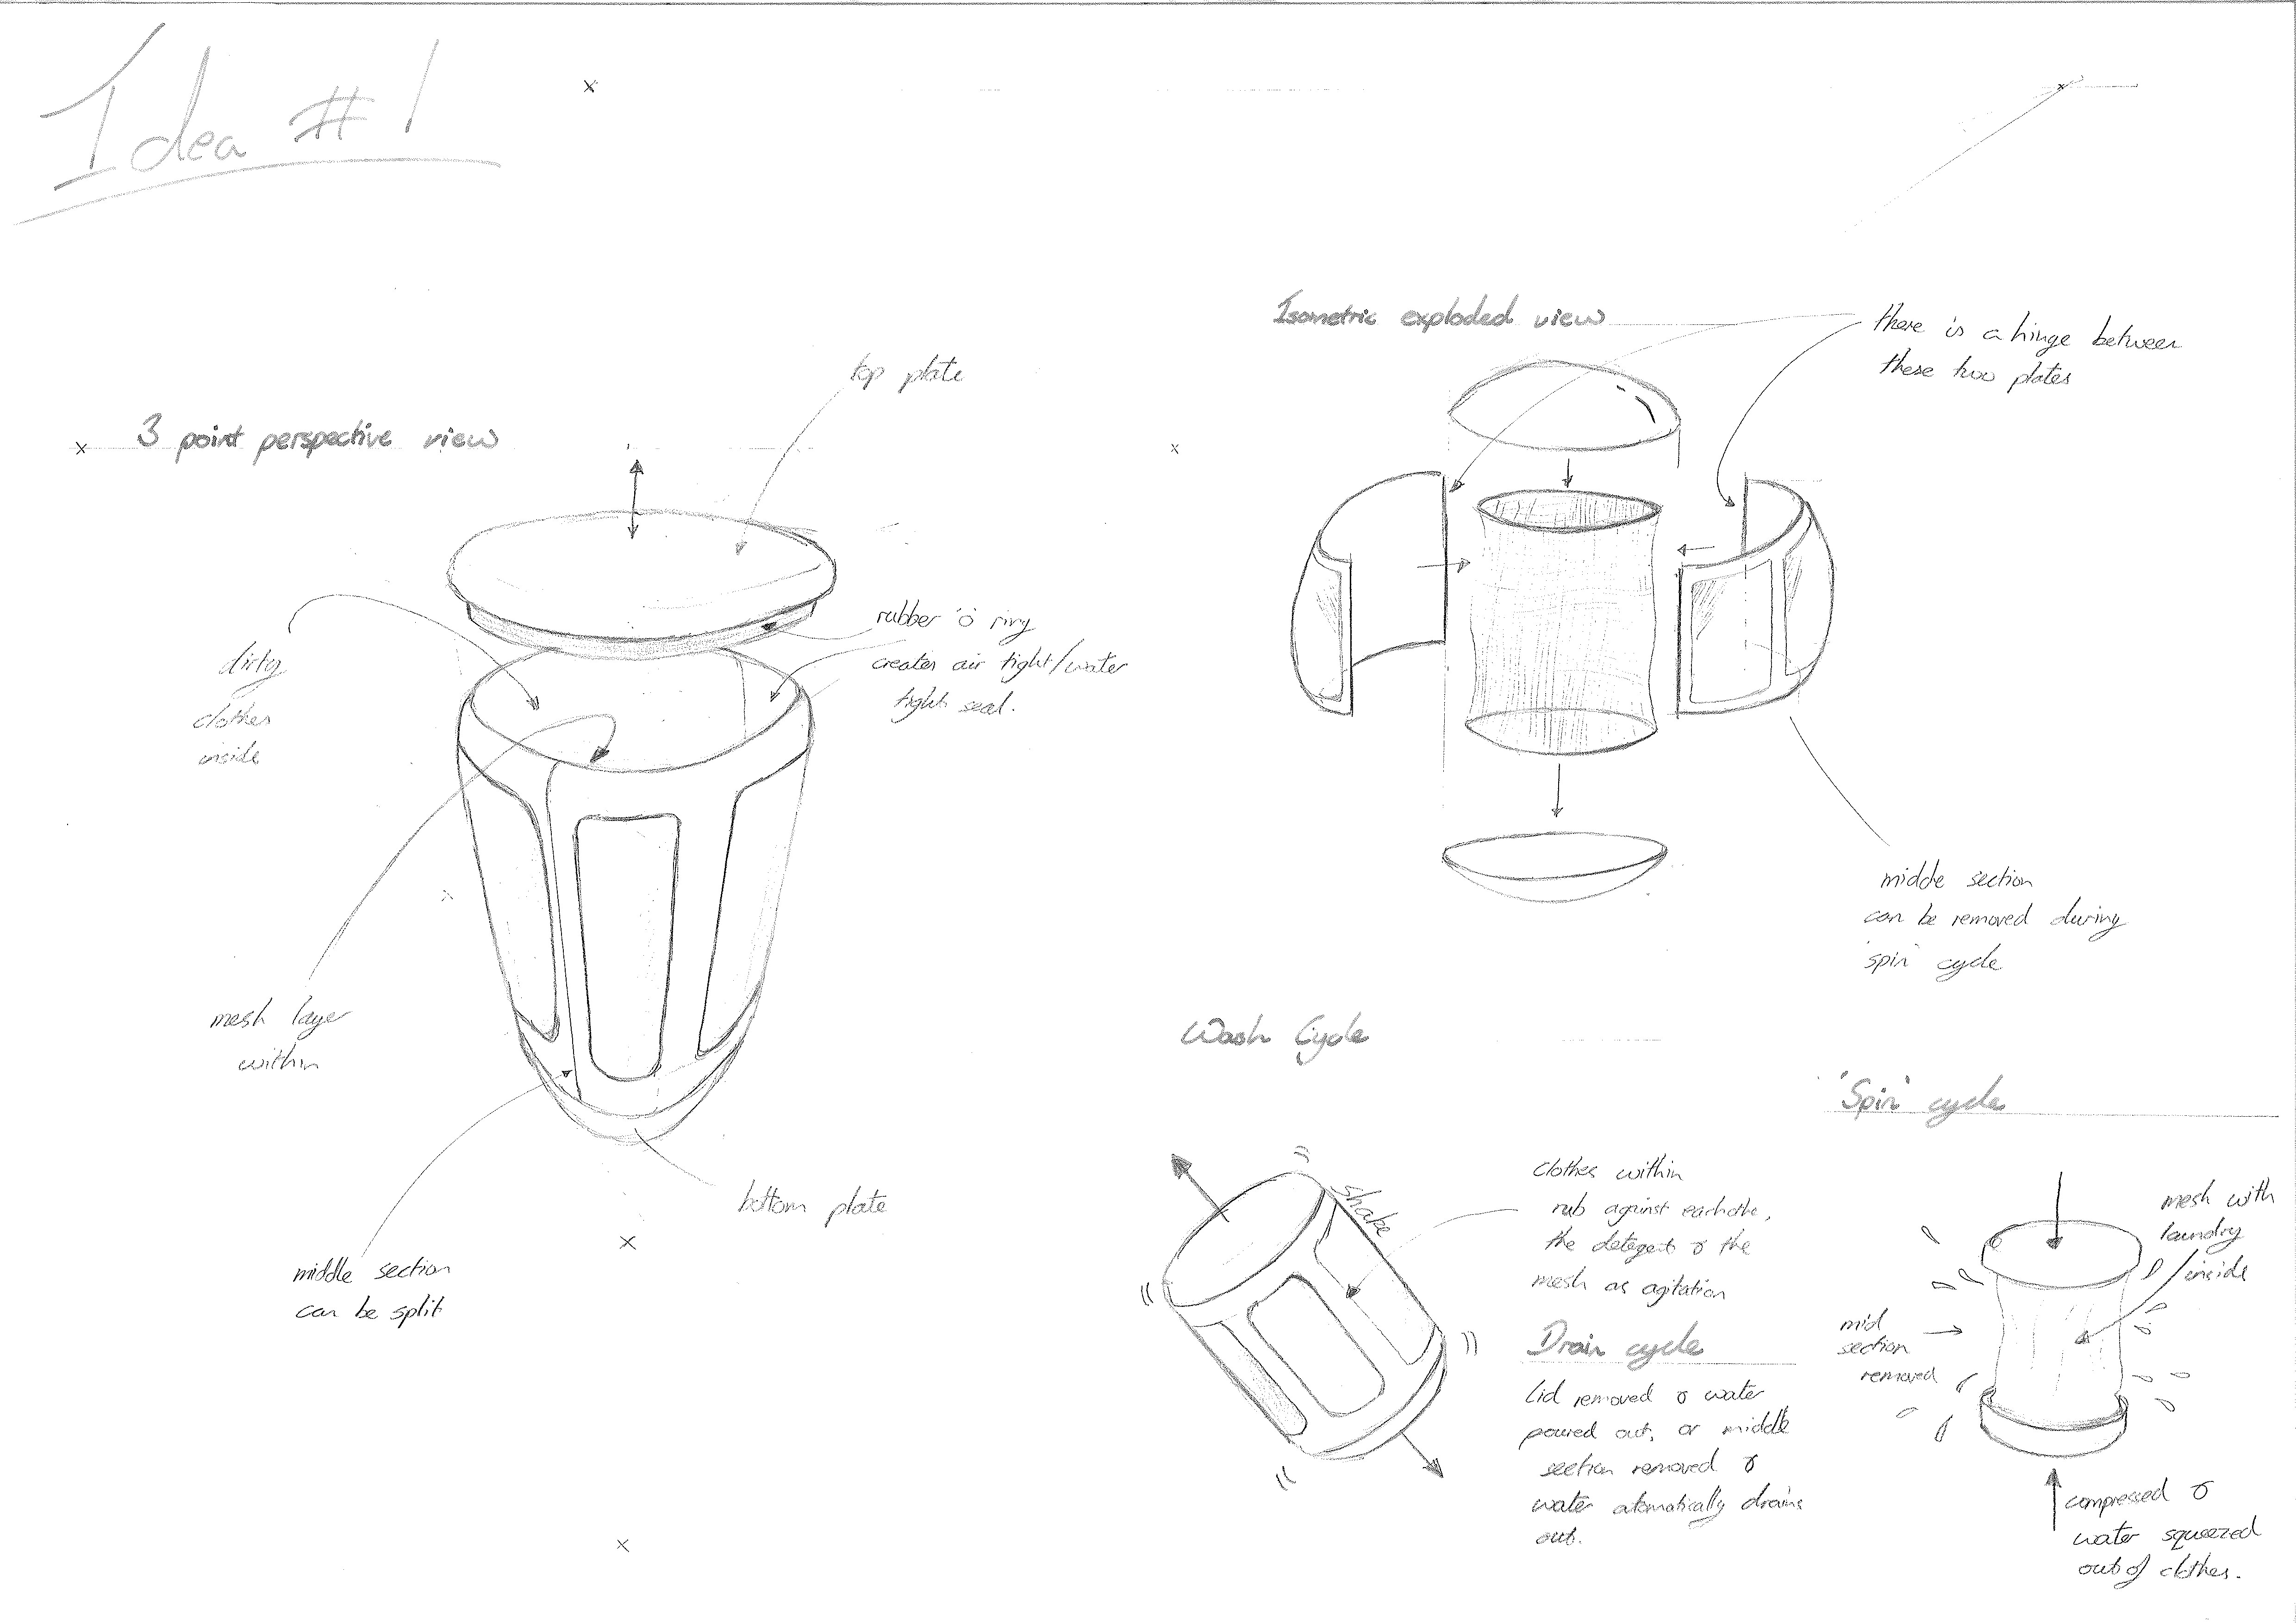 Idea #1
3 point perspective view
top plate
rubber 'o' ring
creates air tight/water
tight seal.
dirty
clothes
inside
mesh layer
within
bottom plate
middle section
can be split
Isometric exploded view
there is a hinge between
these two plates
middle section
can be removed during
'spin' cycle
Wash Cycle
shake
clothes within
rub against eachothe,
the detegent & the
mesh as agitation
Drain cycle
Lid removed & water
poured out, or middle
section removed &
water atomatically drains
out.
'Spin' cycle
mesh with
laundry
inside
mid
section
removed
compressed &
water squeezed
out of clothes.